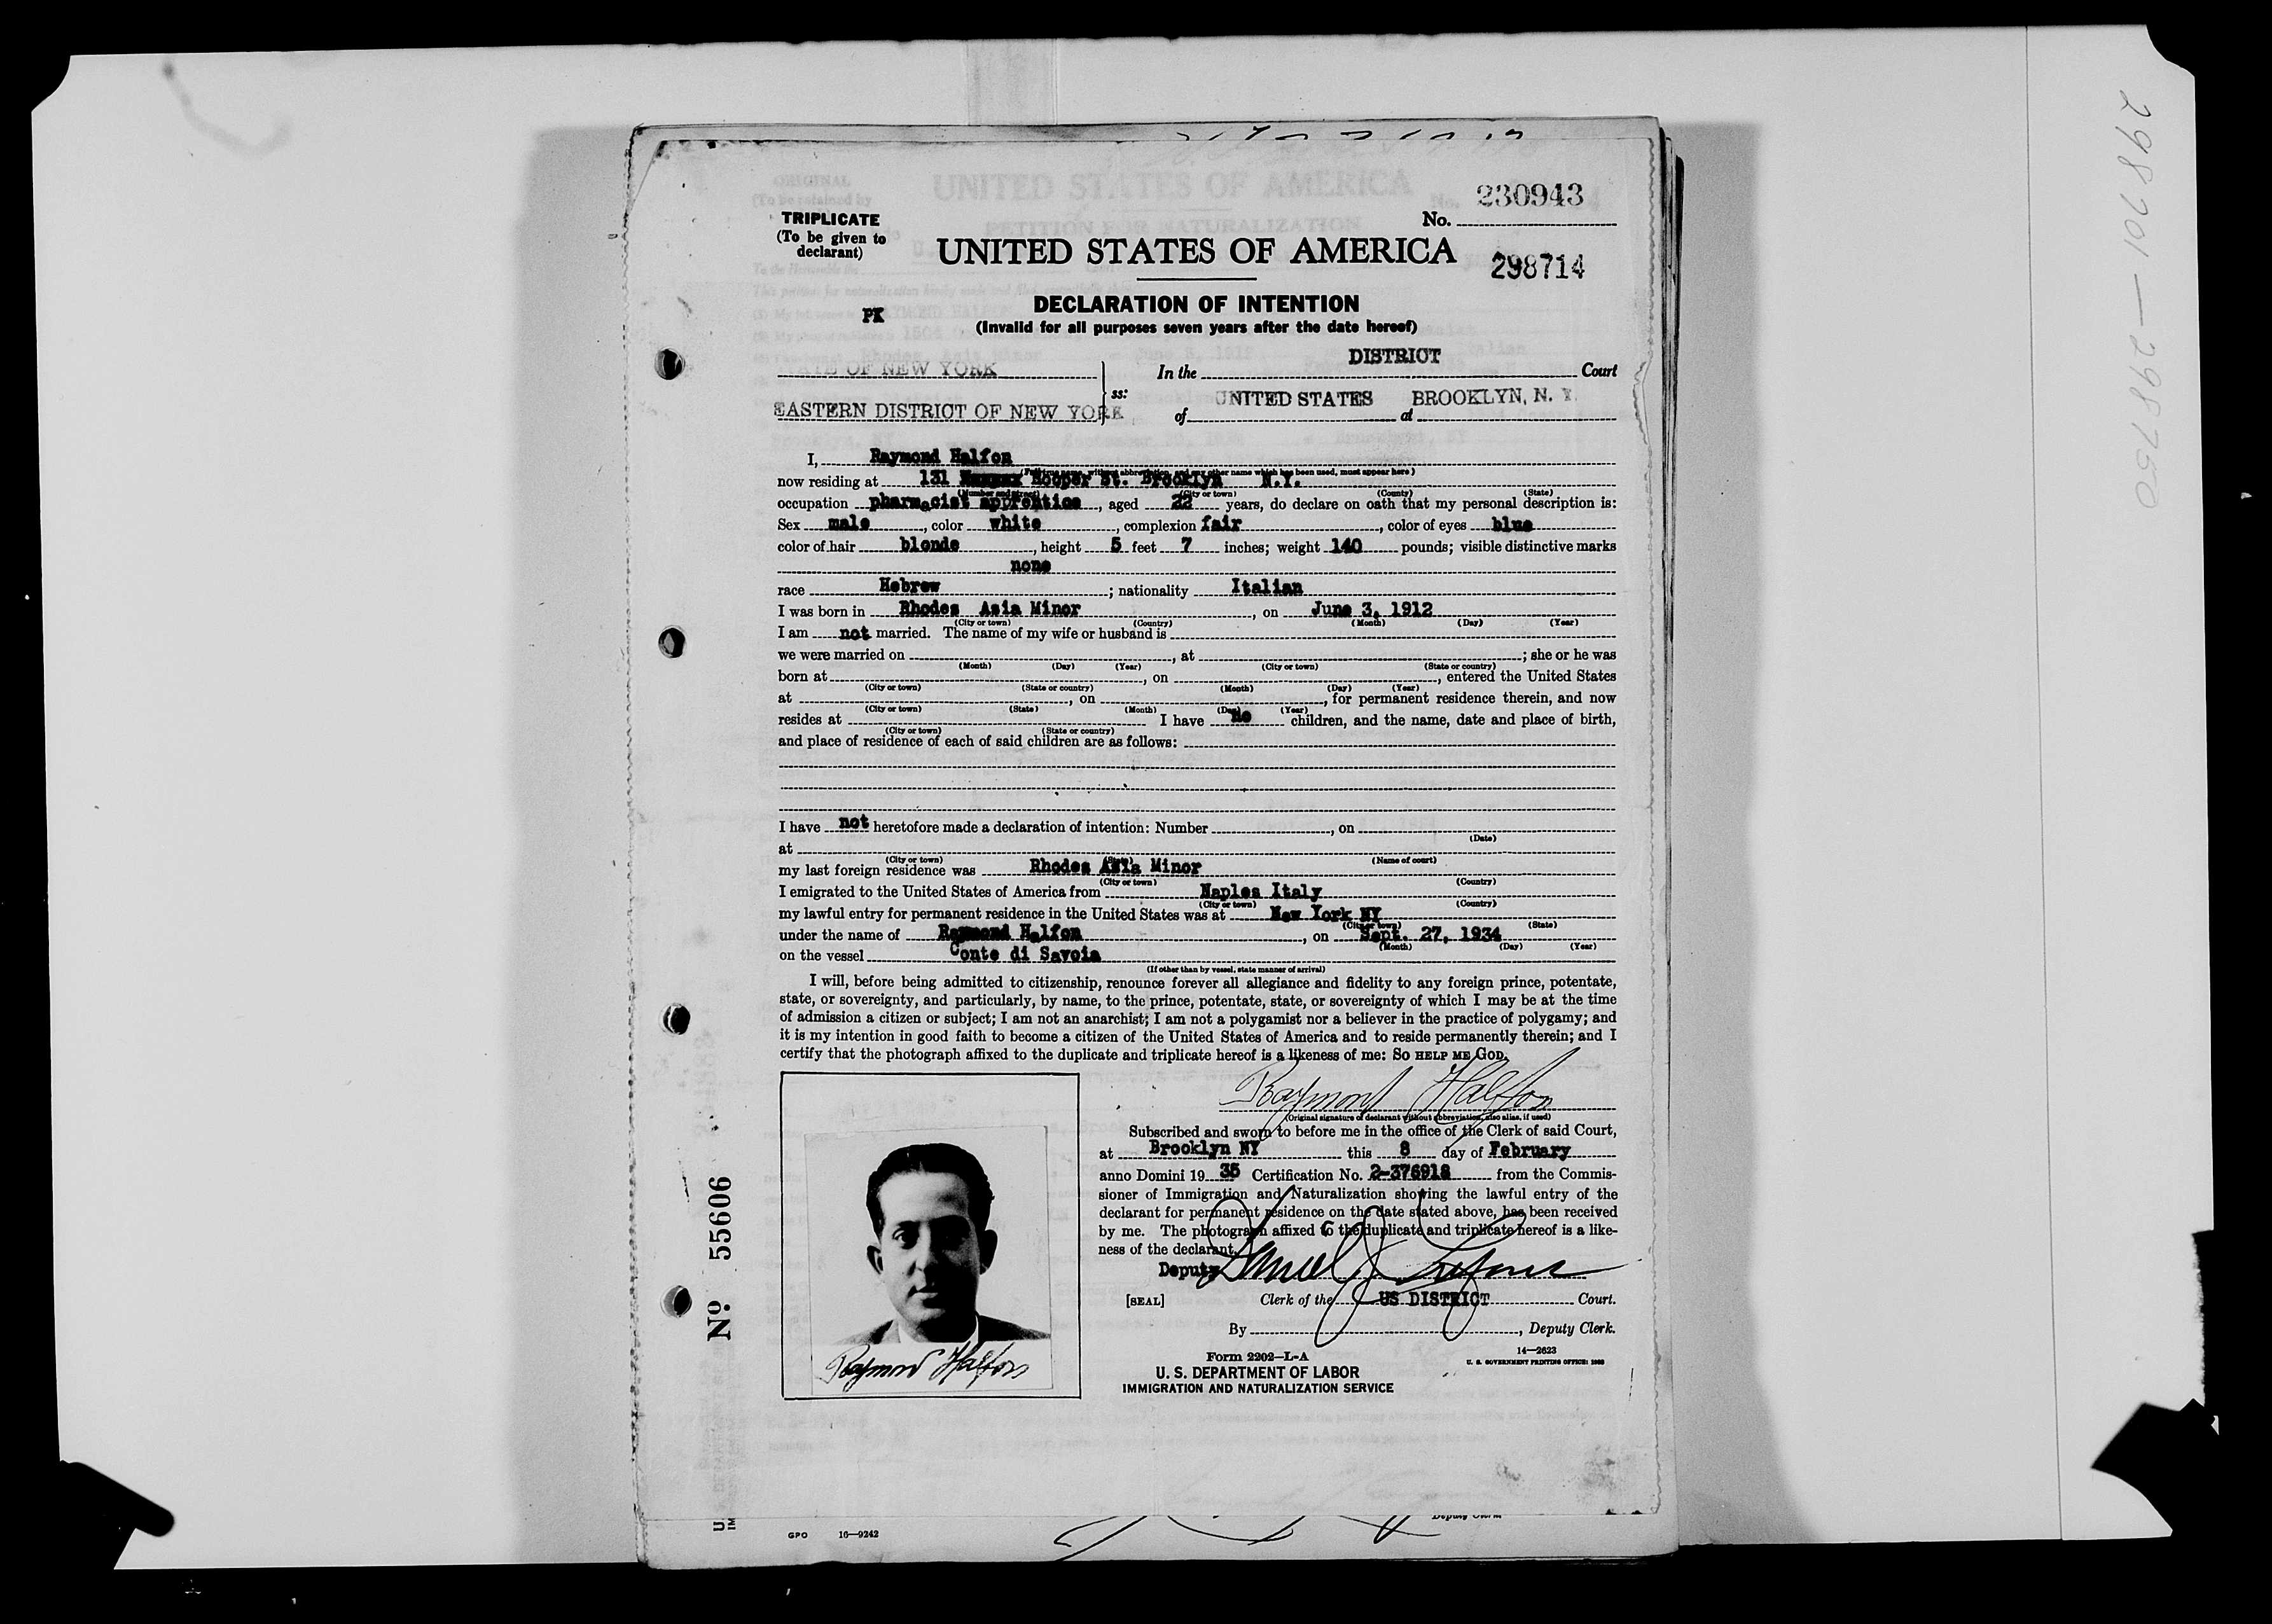 298701 — 298750
TRIPLICATE
(To be given to
declarant)
No. 230943
UNITED STATES OF AMERICA
298714
DECLARATION OF INTENTION
PK
(Invalid for all purposes seven years after the date hereof)
OF NEW YORK
In the DISTRICT Court
ss:
EASTERN DISTRICT OF NEW YORK
of UNITED STATES at BROOKLYN, N. Y.
I, Raymond Halfon
(Full true name, without abbreviation, and any other name which has been used, must appear here)
now residing at 131 Hooper St. Brooklyn N.Y.
(Number and street) (City or town) (County) (State)
occupation pharmacist apprentice, aged 22 years, do declare on oath that my personal description is:
Sex male, color white, complexion fair, color of eyes blue
color of hair blonde, height 5 feet 7 inches; weight 140 pounds; visible distinctive marks
none
race Hebrew; nationality Italian
I was born in Rhodes Asia Minor, on June 3, 1912
(City or town) (Country) (Month) (Day) (Year)
I am not married. The name of my wife or husband is
we were married on , at ; she or he was
(Month) (Day) (Year) (City or town) (State or country)
born at , on , entered the United States
(City or town) (State or country) (Month) (Day) (Year)
at , on , for permanent residence therein, and now
(City or town) (State) (Month) (Day) (Year)
resides at I have no children, and the name, date and place of birth,
(City or town) (State or country)
and place of residence of each of said children are as follows:
I have not heretofore made a declaration of intention: Number , on
(Date)
at
(City or town) (State) (Name of court)
my last foreign residence was Rhodes Asia Minor
(City or town) (Country)
I emigrated to the United States of America from Naples Italy
(City or town) (Country)
my lawful entry for permanent residence in the United States was at New York NY
(City or town) (State)
under the name of Raymond Halfon, on Sept. 27, 1934
(Month) (Day) (Year)
on the vessel Conte di Savoia
(If other than by vessel, state manner of arrival)
I will, before being admitted to citizenship, renounce forever all allegiance and fidelity to any foreign prince, potentate,
state, or sovereignty, and particularly, by name, to the prince, potentate, state, or sovereignty of which I may be at the time
of admission a citizen or subject; I am not an anarchist; I am not a polygamist nor a believer in the practice of polygamy; and
it is my intention in good faith to become a citizen of the United States of America and to reside permanently therein; and I
certify that the photograph affixed to the duplicate and triplicate hereof is a likeness of me: SO HELP ME GOD.
Raymond Halfon
(Original signature of declarant without abbreviation, also alias, if used)
Subscribed and sworn to before me in the office of the Clerk of said Court,
at Brooklyn NY this 8 day of February
anno Domini 1935 Certification No. 2-376918 from the Commis-
sioner of Immigration and Naturalization showing the lawful entry of the
declarant for permanent residence on the date stated above, has been received
by me. The photograph affixed to the duplicate and triplicate hereof is a like-
ness of the declarant.
Deputy
[SEAL] Clerk of the US DISTRICT Court.
By , Deputy Clerk.
Form 2202-L-A
14—2623
U. S. DEPARTMENT OF LABOR
U. S. GOVERNMENT PRINTING OFFICE:
IMMIGRATION AND NATURALIZATION SERVICE
Raymond Halfon
No. 55606
GPO 16—9242
Deputy Clerk